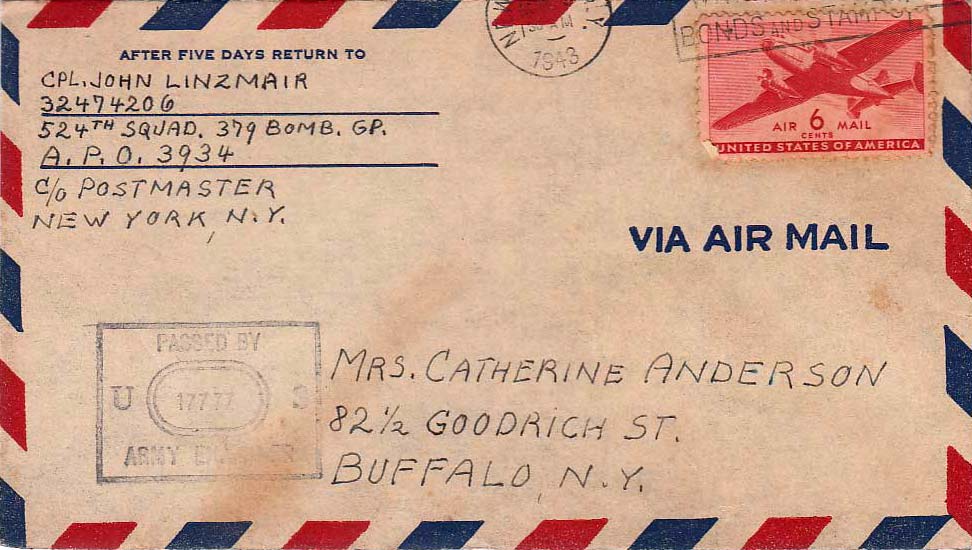 AFTER FIVE DAYS RETURN TO
CPL. JOHN LINZMAIR
32474206
524TH SQUAD. 379 BOMB. GP.
A. P. O. 3934
C/O POSTMASTER
NEW YORK, N.Y.
1943
BONDS AND STAMPS
AIR 6 MAIL
CENTS
UNITED STATES OF AMERICA
VIA AIR MAIL
PASSED BY
U 17777 S
ARMY
MRS. CATHERINE ANDERSON
82 1/2 GOODRICH ST.
BUFFALO, N.Y.